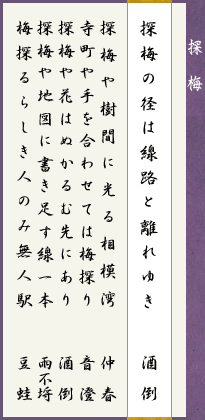 探梅
探梅の径は線路と離れゆき　酒倒
探梅や樹間に光る相模湾　仲春
寺町や手を合わせては梅探り　音澄
探梅や花はぬかるむ先にあり　酒倒
探梅や地図に書き足す線一本　雨不埒
梅探るらしき人のみ無人駅　豆蛙